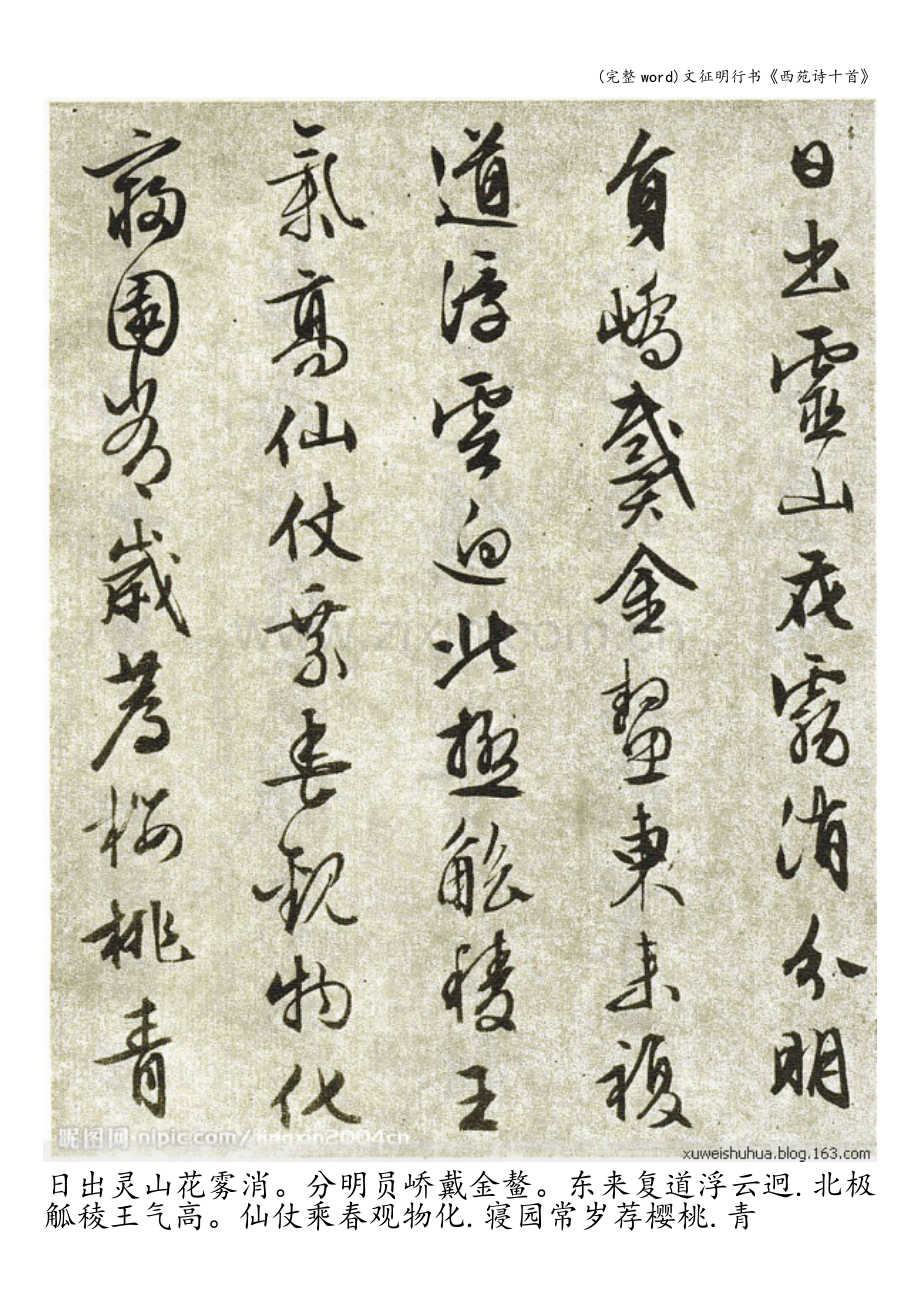 (完整word)文征明行书《西苑诗十首》
日出靈山花霧消分明
員嶠戴金鼇東来複
道浮雲迥北極觚稜王
氣高仙仗乘春觀物化
寢園常歲薦櫻桃青
www.zixin.com.cn
昵图网 nipic.com/jingxin2004cn
xuweishuhua.blog.163.com
日出灵山花雾消。分明员峤戴金鳌。东来复道浮云迥.北极
觚稜王气高。仙仗乘春观物化.寝园常岁荐樱桃.青